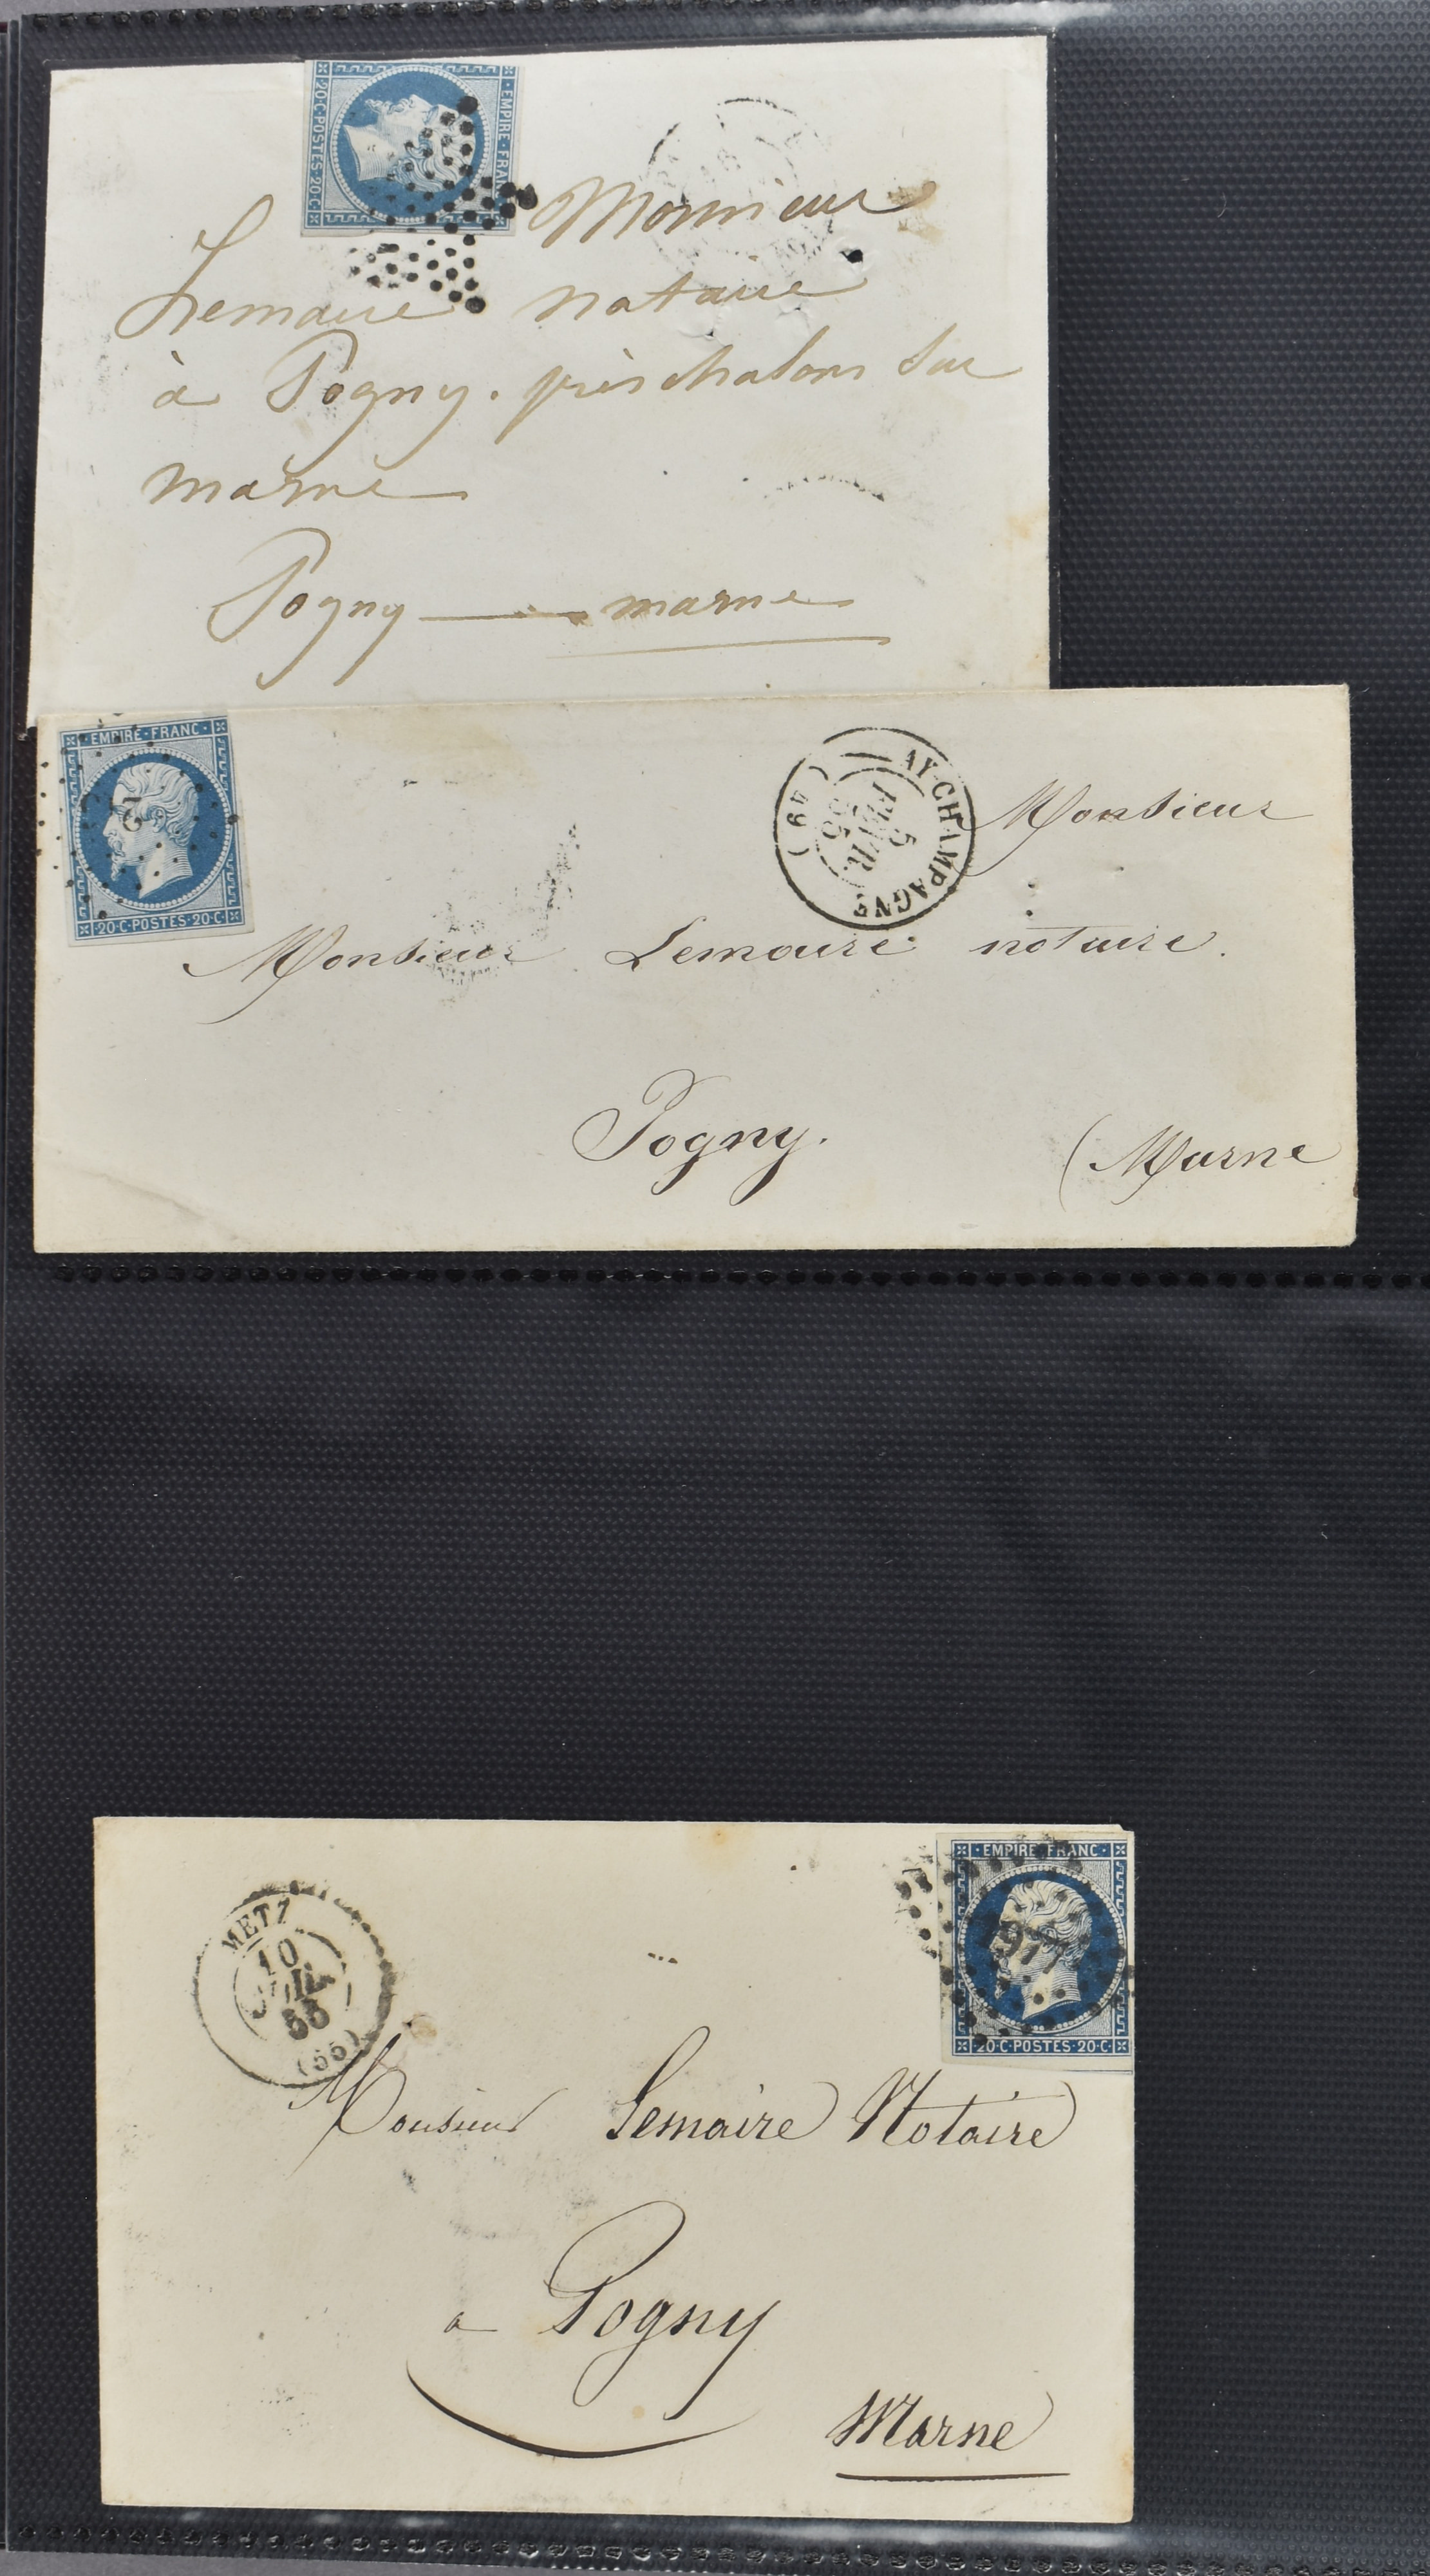 EMPIRE · FRANC
20·C·POSTES·20·C
Monsieur
Lemaire notaire
à Pogny. près chalons sur
marne
Pogny — marne
· EMPIRE · FRANC ·
·20·C·POSTES·20·C·
2
AY-CHAMPAGNE
5
FEVR.
55
(49)
Monsieur
Monsieur Lemaire notaire.
Pogny.
(Marne
· EMPIRE · FRANC ·
·20·C·POSTES·20·C·
METZ
10
55
(55)
Monsieur Lemaire Notaire
a Pogny
Marne